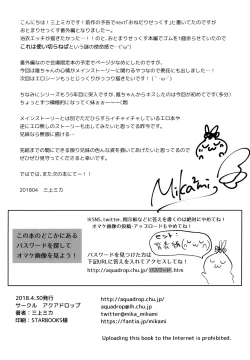 こんにちは！三上ミカです！前作の予告でnext「おねだりせっくす」と書いてたのですが
おとまりせっくす番外編となりましたー。
浴衣エッチが描きたかった…！！のと、おとまりせっくす本編でゴムを1個余らせていたので
これは使い切らねばという謎の使命感で…('ω')
番外編なので会場限定本の予定でページ少なめにしたのですが、
今回は雛ちゃんの心情がメインストーリーに関わるやつなので委託にも出しました…！
次回は王道ハイテンションおねだりえっちを描きたいです！(｀・ω・´)
ちなみにシリーズも5年目に突入ですが、雛ちゃんからキスしたのは今回が初めてです(多分)
ちょっとずつ積極的になって く妹ぉぉーーー(悶)
メインストーリーとは別でただひたすらイチャイチャしているエロ本や
逆にエロ無しのストーリーもの本も出したいと思っているので
今後ともこの兄妹を温かく見守って頂けると嬉しいです。
兄絹までの間にできる限り兄妹の色んな姿を描いてあげたいと思ってるので
ぜひぜひ見守ってくださると嬉しいです。
ではでは、また次の本にてー！！
201804 三上ミカ
Mikami
※SNS、twitter、掲示板などに答えを書くのは絶対にやめてね！
オマケ画像の投稿・アップロードもやめてね！
この本のどこかにある
パスワードを探して
オマケ画像を見よう！
パスワードを見つけた方は
下記URLに答えを入れてアクセスしてね！
http://aquadrop.chu.jp/パスワード.htm
2018.4.30発行
サークル アクアドロップ
著者：三上ミカ
印刷：STARBOOKS様
http://aquadrop.chu.jp/
aquadrop@lh.chu.jp
twitter@mika_mikami
https://fantia.jp/mikami
Uploading this book to the Internet is prohibited.